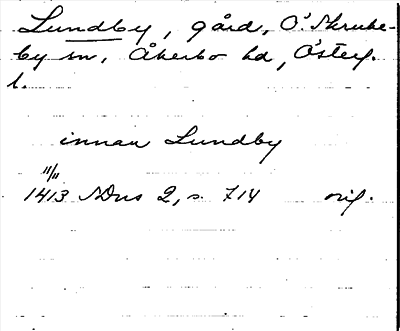 Lundby, gård, Ö. Skruke-
by sn, Åkerbo hd, Österg.
l.
innan Lundby
11/11
1413 SDns 2, s. 714 orig.